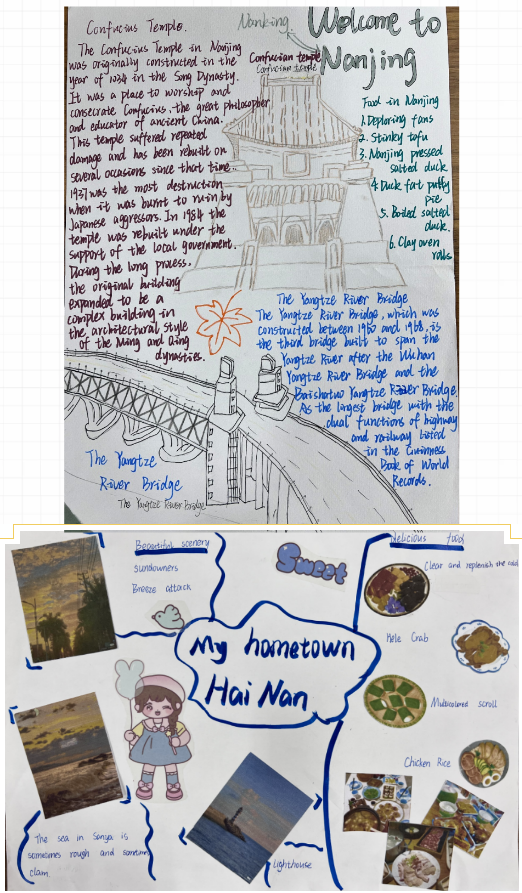 Confucius Temple.
The Confucius Temple in Nanjing
was originally constructed in the
year of 1034 in the Song Dynasty.
It was a place to worship and
consecrate Confucius, the great philosopher
and educator of ancient China.
This temple suffered repeated
damage and has been rebuilt on
several occasions since that time.
1937 was the most destruction
when it was burnt to ruin by
Japanese aggressors. In 1984 the
temple was rebuilt under the
support of the local government.
During the long process.
the original building
expanded to be a
complex building in
the architectural style
of the Ming and Qing
dynasties.
Nanking
Welcome to
Nanjing
Confucian temple
Confucian temple
Food in Nanjing
1. Deploring fans
2. Stinky tofu
3. Nanjing pressed
salted duck
4 Duck fat puffy
pie
5. Boiled salted
duck.
6. Clay oven
rolls
The Yangtze River Bridge
The Yangtze River Bridge, which was
constructed between 1960 and 1968, is
the third bridge built to span the
Yangtze River after the Wuhan
Yangtze River Bridge and the
Baishatuo Yangtze River Bridge.
As the largest bridge with the
dual functions of highway
and railway listed
in the Guinness
Book of World
Records.
The Yangtze
River Bridge
The Yangtze River Bridge
Beautiful scenery
sundowners
Breeze attach
Sweet
Delicious food
Clear and replenish the cold
Hele Crab
Multicolored scroll
Chicken Rice
My hometown
Hai Nan
The sea in Sanya is
sometimes rough and sometim
clam
lighthouse